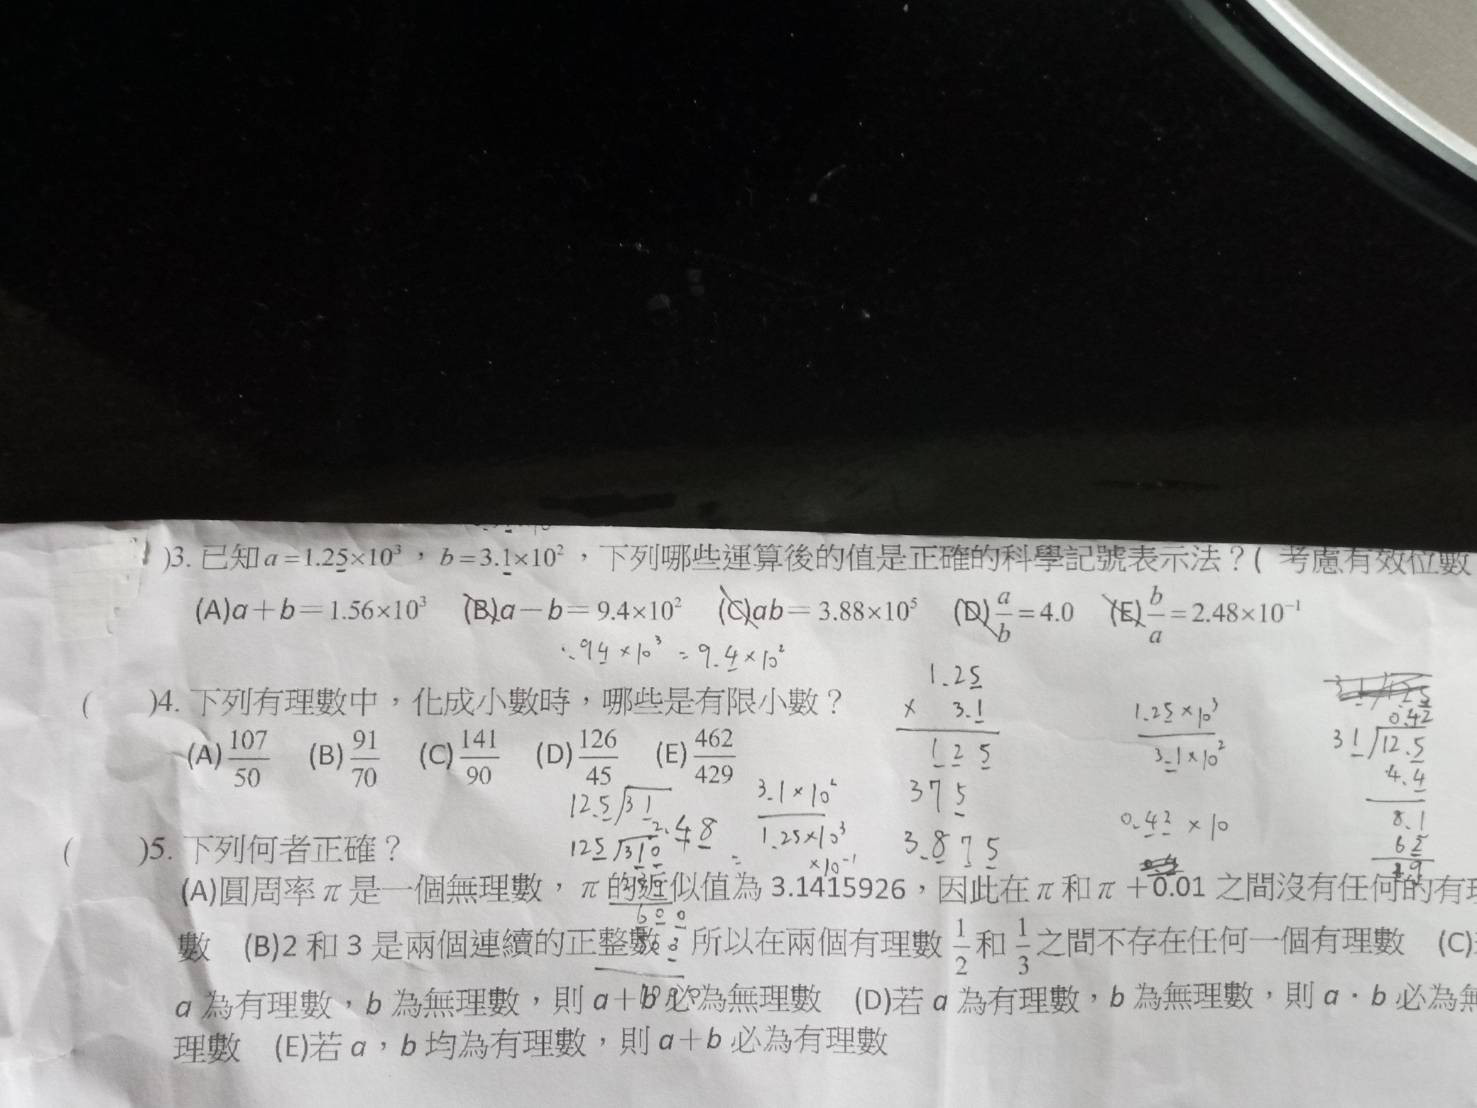 )3. 已知 a＝1.25×10³，b＝3.1×10²，下列哪些運算後的值是正確的科學記號表示法？( 考慮有效位數
(A)a＋b＝1.56×10³ (B)a－b＝9.4×10² (C)ab＝3.88×10⁵ (D)a/b＝4.0 (E)b/a＝2.48×10⁻¹
.94×10³ = 9.4×10²
( )4. 下列有理數中，化成小數時，哪些是有限小數？
(A)107/50 (B)91/70 (C)141/90 (D)126/45 (E)462/429
1.25
× 3.1
1 2 5
3 7 5
3.8 7 5
1.25×10³
3.1×10²
0.42×10
0.42
31 12.5
4.4
8.1
62
12.5 31
125 310
2.48
3.1×10²
1.25×10³
×10⁻¹
600
( )5. 下列何者正確？
(A)圓周率 π 是一個無理數，π 的近似值為 3.1415926，因此在 π 和 π＋0.01 之間沒有任何的有理
數 (B)2 和 3 是兩個連續的正整數，所以在兩個有理數 1/2 和 1/3 之間不存在任何一個有理數 (C)
a 為有理數，b 為無理數，則 a＋b 必為無理數 (D)若 a 為有理數，b 為無理數，則 a・b 必為無
理數 (E)若 a，b 均為有理數，則 a＋b 必為有理數